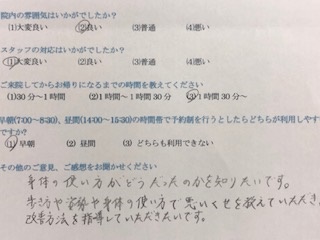 院内の雰囲気はいかがでしたか?
(1)大変良い (2)良い (3)普通 (4)悪い
スタッフの対応はいかがでしたか?
(1)大変良い (2)良い (3)普通 (4)悪い
ご来院してからお帰りになるまでの時間を教えてください
(1)30分~1時間 (2)1時間~1時間30分 (3)1時間30分~
早朝(7:00~8:30)、昼間(14:00~15:30)の時間帯で予約制を行うとしたらどちらが利用しやす
ですか?
(1)早朝 (2)昼間 (3)どちらも利用できない
その他のご意見、ご感想をお聞かせください
身体の使い方がどうだったのかを知りたいです。
歩き方や姿勢や身体の使い方で悪いくせを教えていただき
改善方法を指導していただきたいです。